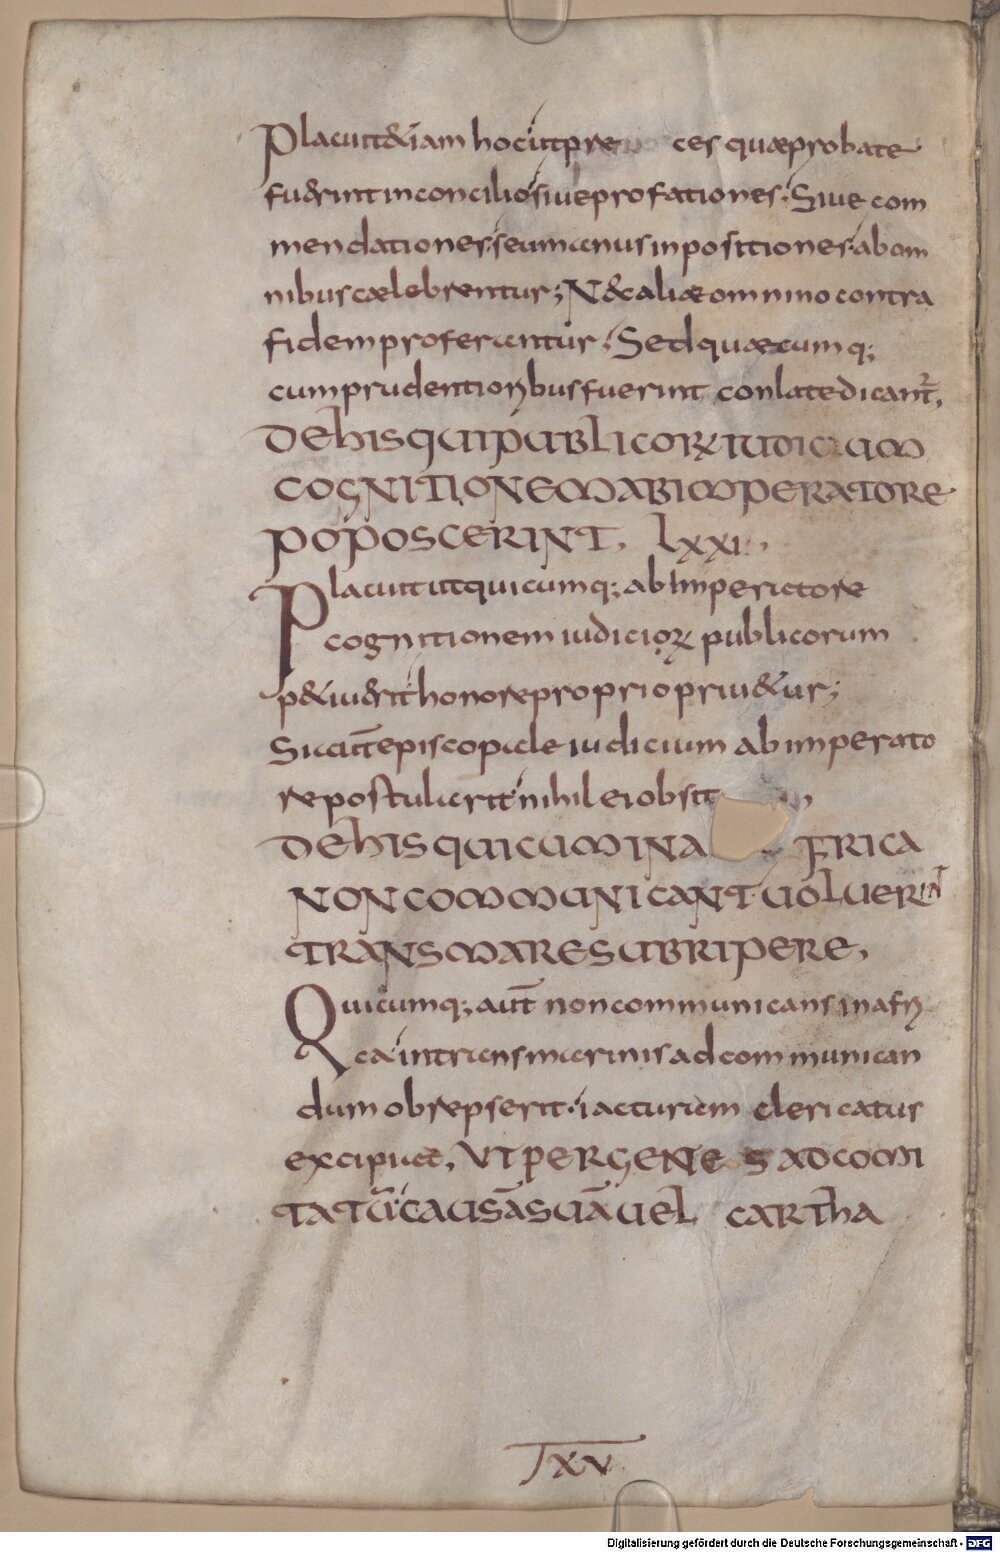 Placuit&iam hoc ut pre ces quæ probate
fu&rint in concilio siue profationes; Siue com
mendationes seu manus inpositiones ab om
nibus cælebrentur; N& aliæ omnino contra
fidem proferantur; Sed quæcumq;
cum prudentioribus fuerint conlate dicant̄r.
DE HIS QUI PUBLICORꝜ IUDICIUM
COGNITIONEM AB IMPERATORE
POPOSCERINT. LXXI.
Placuit ut quicumq; ab imperatore
cognitionem iudicioꝝ publicorum
p&iu&rit honore proprio priu&ur;
Si aut̄ episcopale iudicium ab impera to
re postulaerit nihil ei obsit
DE HIS QUI CUM IN A FRICA
NON COMMUNICANT UOLUERINT
TRANSMARE SUBRIPERE.
Quicumq; aut̄ non communicans in afri
ca intrans marinis ad communican
dum obrepserit iacturam clericatus
excipiat. UT PERGENE S AD COMI
TATŪ CAUSĀ SUĀ UEL CARTHA
XV
Digitalisierung gefördert durch die Deutsche Forschungsgemeinschaft - DFG